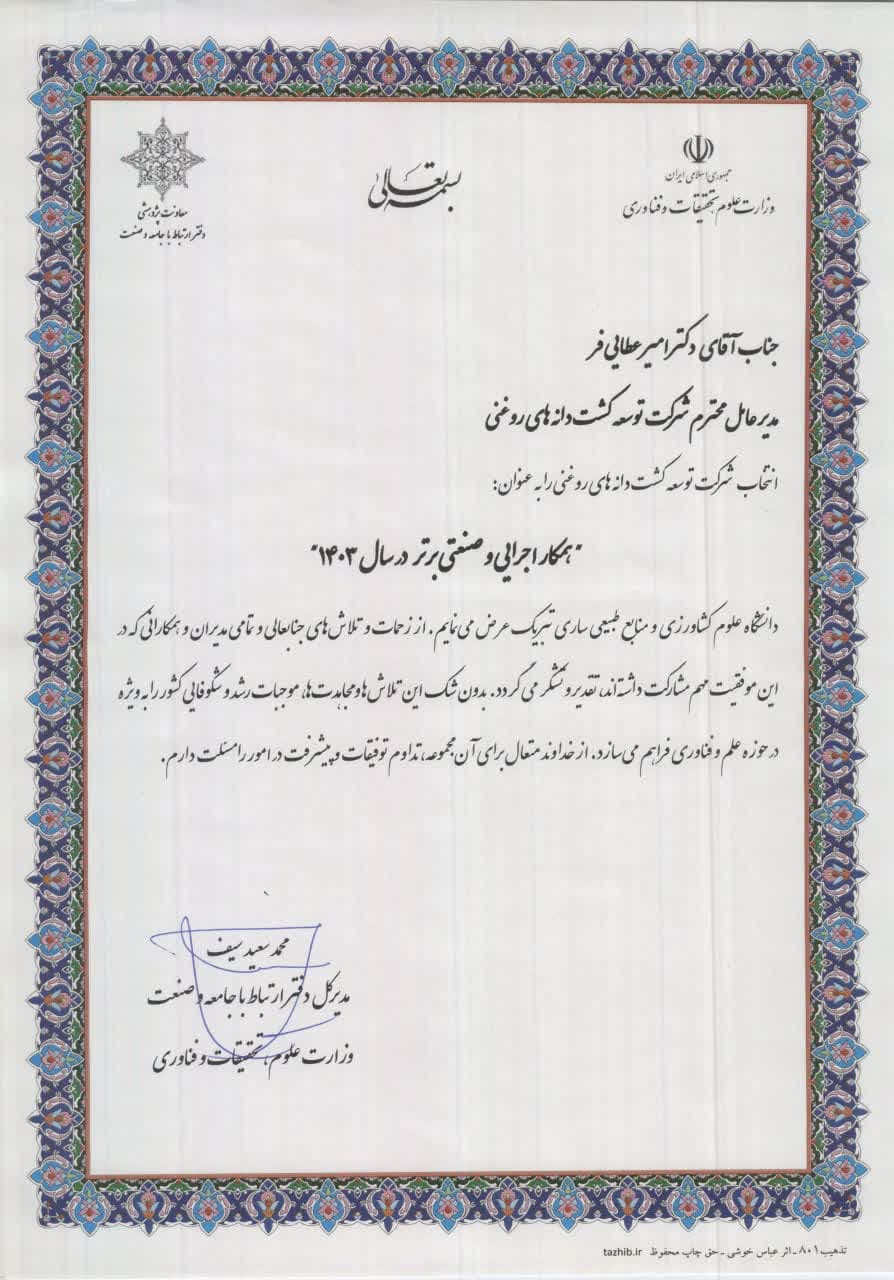 جمهوری اسلامی ایران
وزارت علوم، تحقیقات و فناوری
بسمه تعالی
معاونت پژوهشی
دفتر ارتباط با جامعه و صنعت
جناب آقای دکتر امیر عطایی فر
مدیر عامل محترم شرکت توسعه کشت دانه های روغنی
انتخاب شرکت توسعه کشت دانه های روغنی را به عنوان:
"همکار اجرایی و صنعتی برتر در سال ۱۴۰۳"
دانشگاه علوم کشاورزی و منابع طبیعی ساری تبریک عرض می نمایم. از زحمات و تلاش های جنابعالی و تمامی مدیران و همکارانی که در
این موفقیت مهم مشارکت داشته‌اند، تقدیر و تشکر می گردد. بدون شک این تلاش ها و مجاهدت ها، موجبات رشد و شکوفایی کشور را به ویژه
در حوزه علم و فناوری فراهم می سازد. از خداوند متعال برای آن مجموعه، تداوم توفیقات و پیشرفت در امور را مسئلت دارم.
محمد سعید سیف
مدیر کل دفتر ارتباط با جامعه و صنعت
وزارت علوم، تحقیقات و فناوری
تذهیب ۸۰۱ - اثر عباس خوشی - حق چاپ محفوظ tazhib.ir